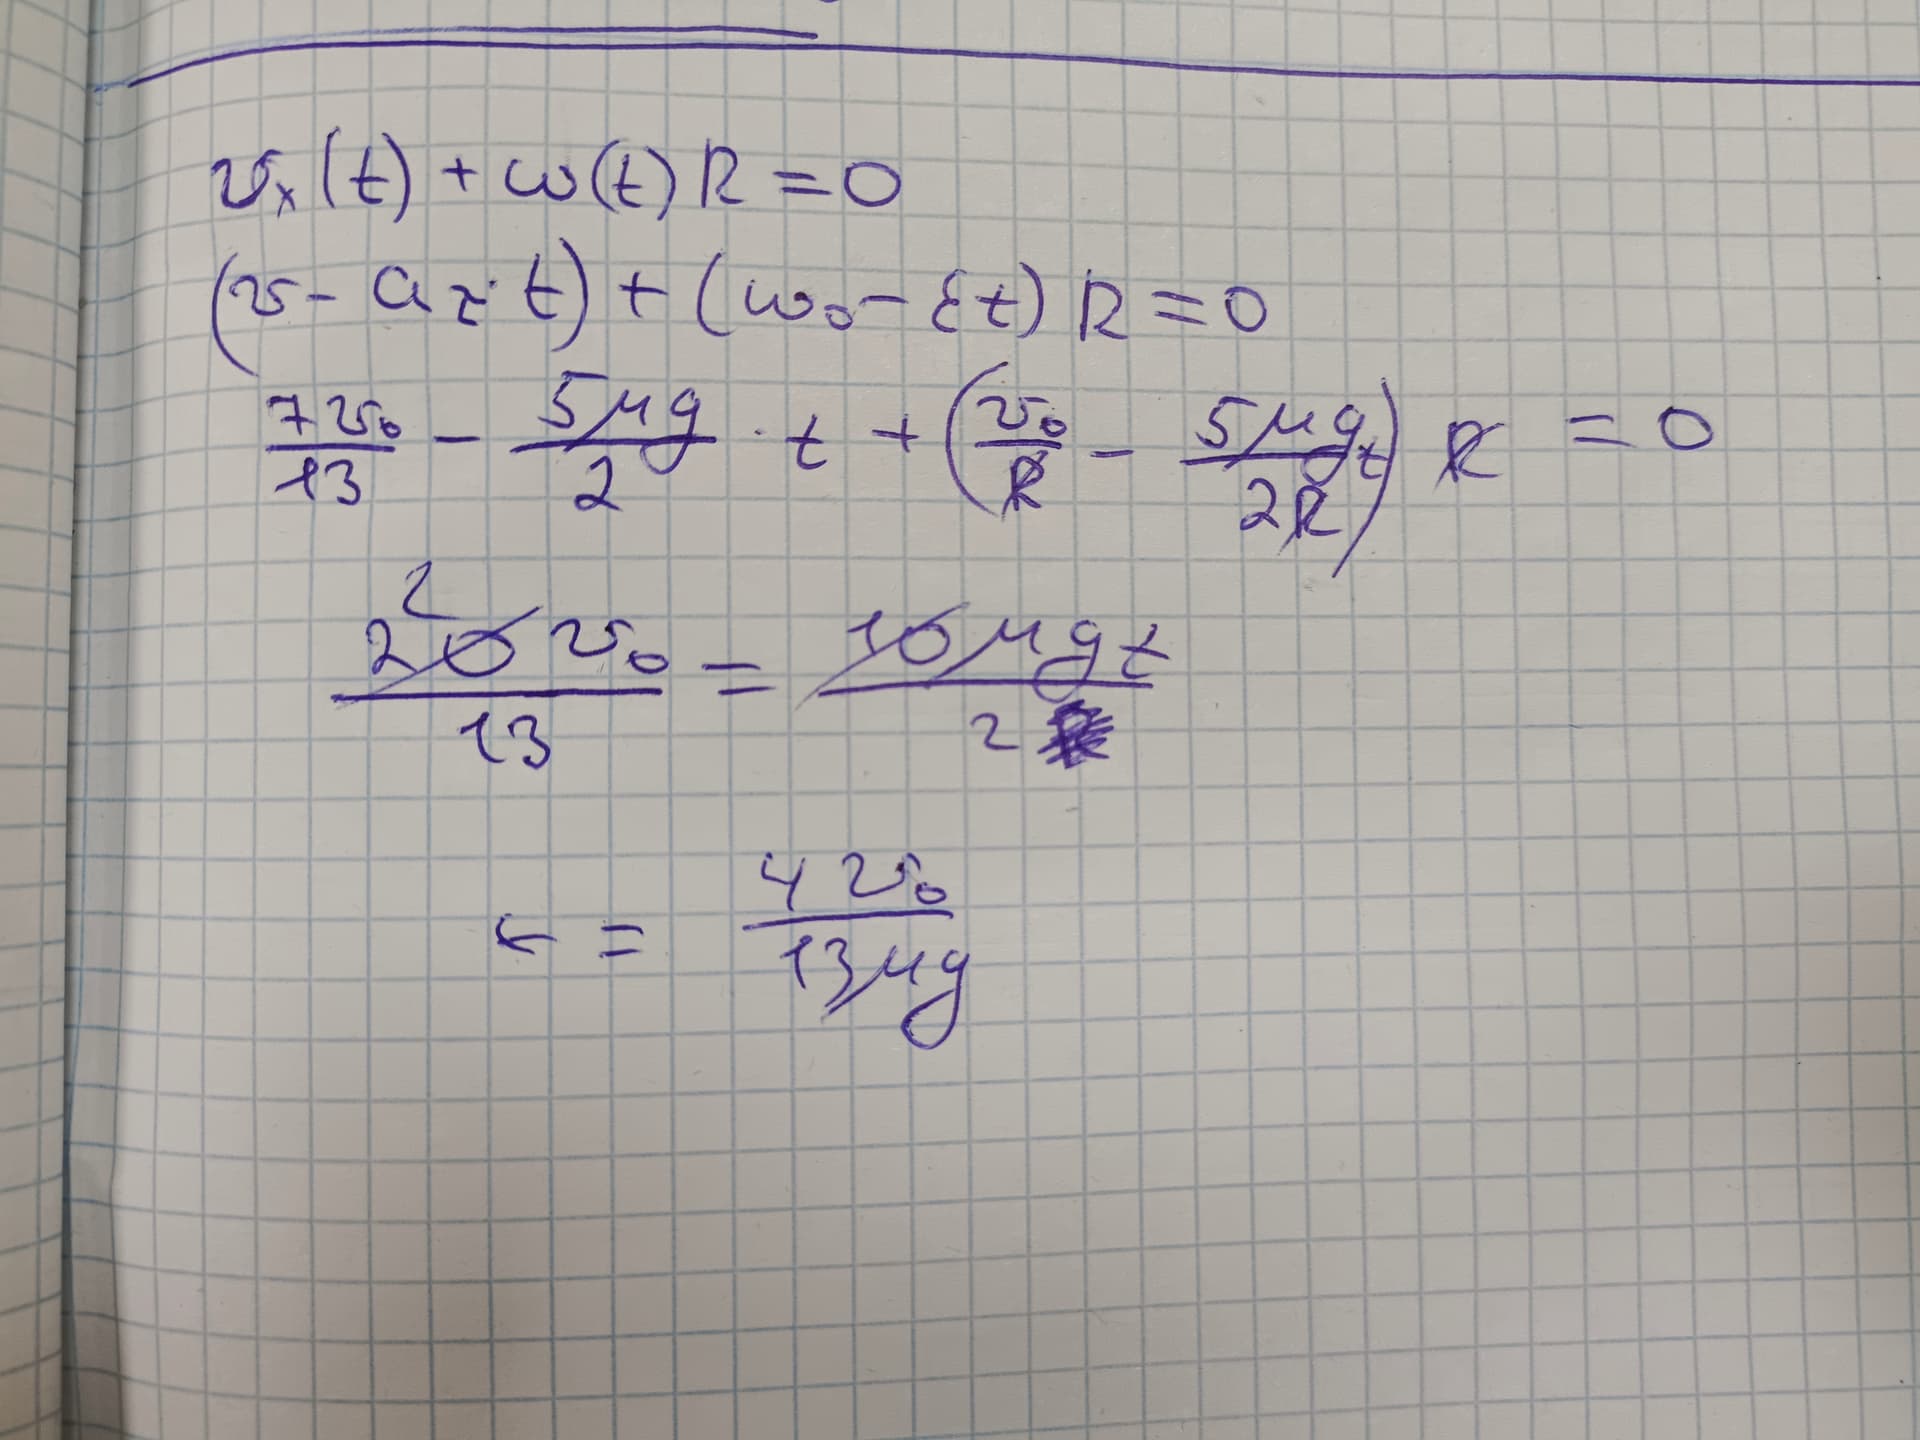 v_x(t) + ω(t)R = 0
(v - a_τ · t) + (ω_0 - εt)R = 0
7v_0/13 - 5μg/2 · t + (v_0/R - 5μgt/2R) R = 0
2
20v_0/13 = 10μgt/2
t = 4v_0/13μg